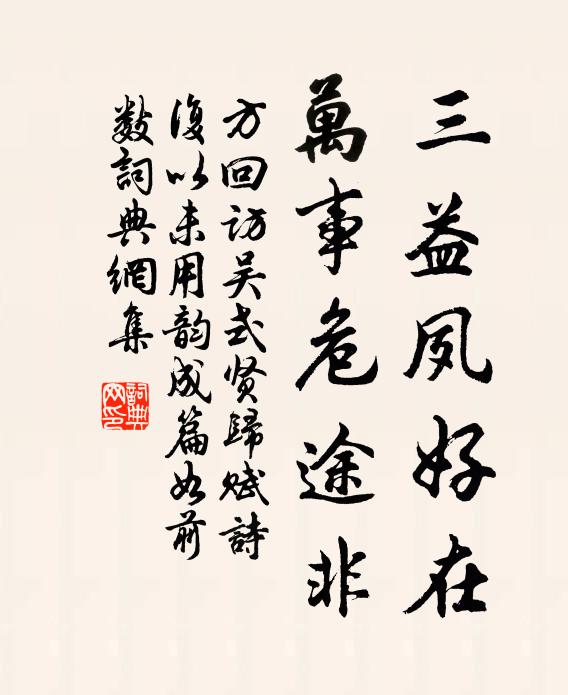 三益夙好在
萬事危途非
方回访吴式贤歸赋詩
復以未用韵成篇如前
数詞典網集
詞典网印